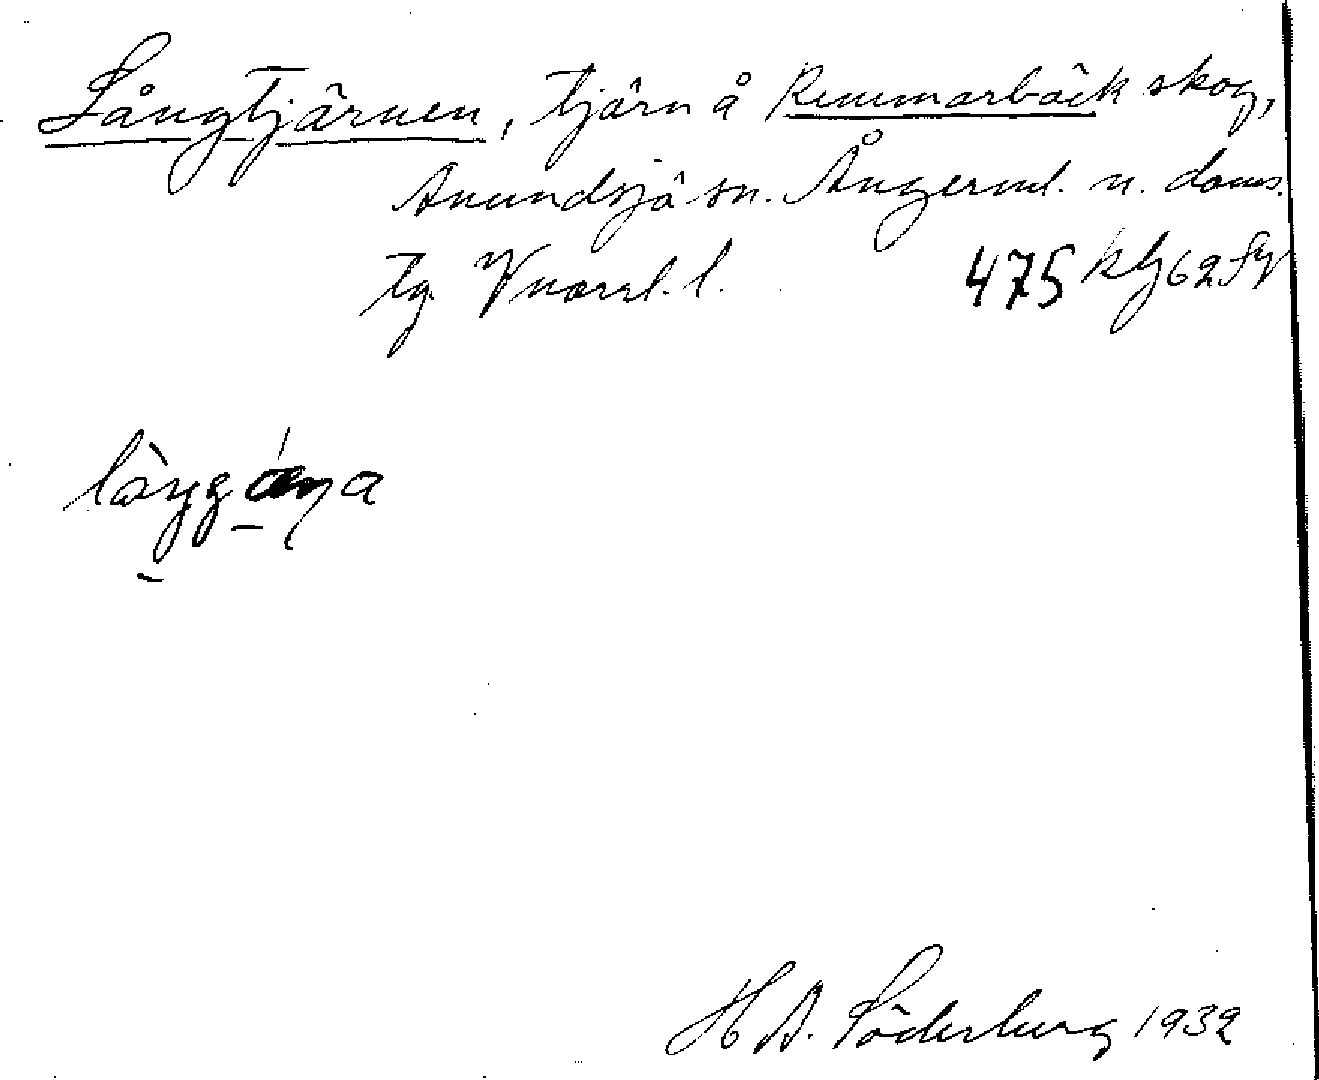 Långtjärnen, tjärn å Remmarbäck skog,
Anundsjö sn. Ångerml. n. doms.
tg Vnorrl. l. 475 kbj 62 Sy
H A. Söderberg 1932